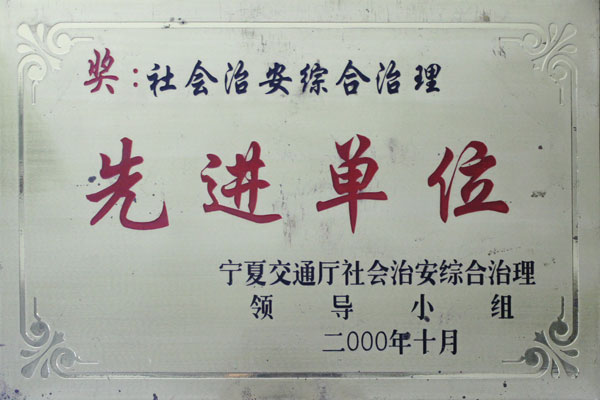 奖:社会治安综合治理
先进单位
宁夏交通厅社会治安综合治理
领导小组
二000年十月